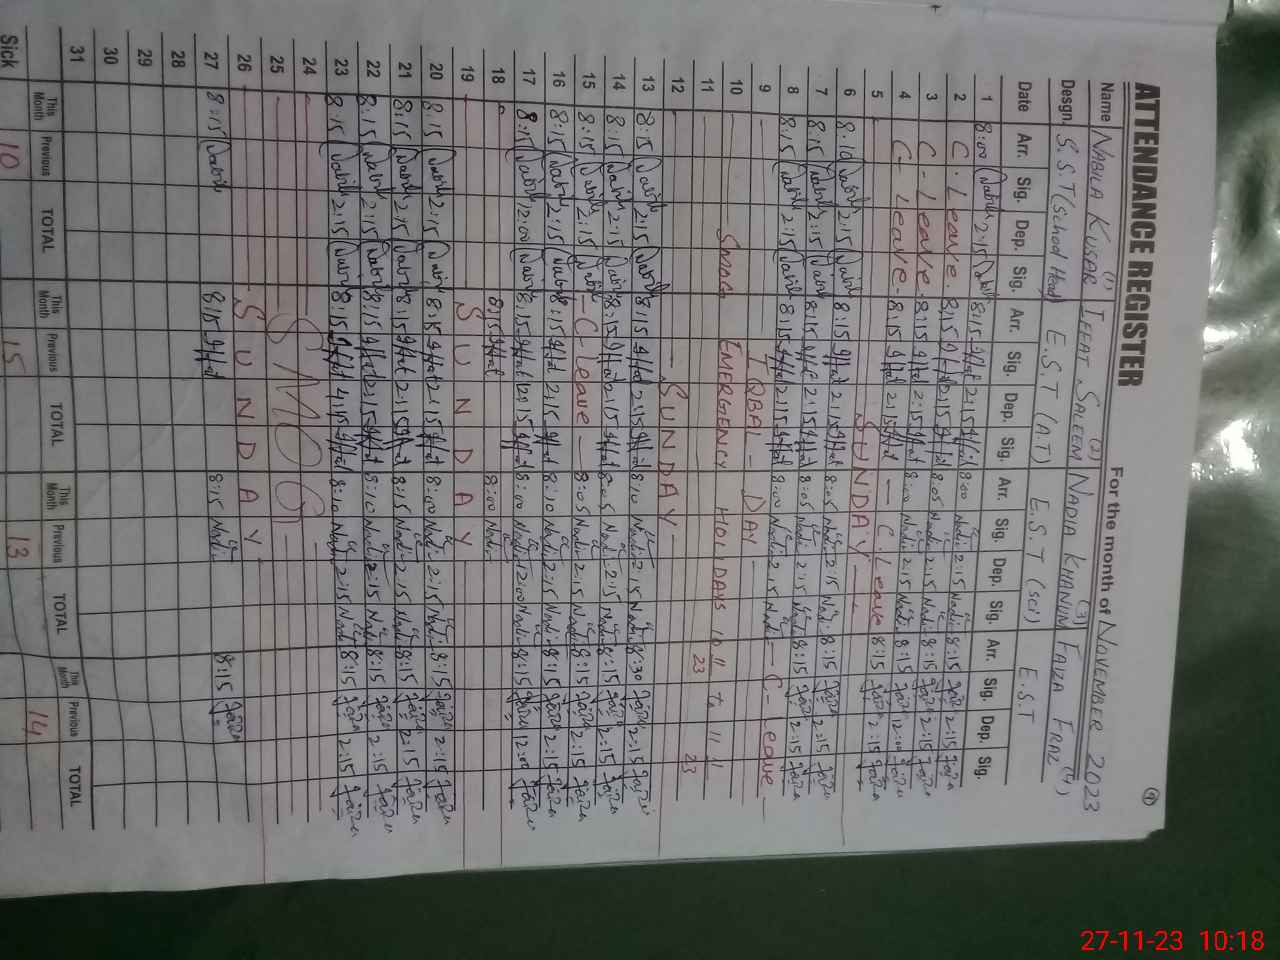 ATTENDANCE REGISTER
For the month of NOVEMBER 2023
(1) (2) (3) (4)
Name NABILA KUSAR IFFAT SALEEM NADIA KHANUM FAIZA FRAZ
Desgn. S.S.T (School Head) E.S.T (AT) E.S.T (Sci) E.S.T
Date Arr. Sig. Dep. Sig. Arr. Sig. Dep. Sig. Arr. Sig. Dep. Sig. Arr. Sig. Dep. Sig.
1 8:00 Nabila 2:15 Nabila 8:15 Iffat 2:15 Iffat 8:00 Nadia 2:15 Nadia 8:15 Faiza 2:15 Faiza
2 C. Leave 8:15 Iffat 2:15 Iffat 8:05 Nadia 2:15 Nadia 8:15 Faiza 2:15 Faiza
3 C - Leave 8:15 Iffat 2:15 Iffat 8:00 Nadia 2:15 Nadia 8:15 Faiza 12:00 Faiza
4 C - Leave 8:15 Iffat 2:15 Iffat - C. Leave 8:15 Faiza 2:15 Faiza
5 SUNDAY
6 8:10 Nabila 2:15 Nabila 8:15 Iffat 2:15 Iffat 8:05 Nadia 2:15 Nadia 8:15 Faiza 2:15 Faiza
7 8:15 Nabila 2:15 Nabila 8:15 Iffat 2:15 Iffat 8:05 Nadia 2:15 Nadia 8:15 Faiza 2:15 Faiza
8 8:15 Nabila 2:15 Nabila 8:15 Iffat 2:15 Iffat 8:00 Nadia 2:15 Nadia - C - Leave
9 IQBAL - DAY
10 SMOG EMERGENCY HOLIDAYS 10/11/23 to 11/11/23
11
12 SUNDAY
13 8:15 Nabila 2:15 Nabila 8:15 Iffat 2:15 Iffat 8:10 Nadia 2:15 Nadia 8:30 Faiza 2:15 Faiza
14 8:15 Nabila 2:15 Nabila 8:15 Iffat 2:15 Iffat 8:05 Nadia 2:15 Nadia 8:15 Faiza 2:15 Faiza
15 8:15 Nabila 2:15 Nabila - C - Leave - 8:05 Nadia 2:15 Nadia 8:15 Faiza 2:15 Faiza
16 8:15 Nabila 2:15 Nabila 8:15 Iffat 2:15 Iffat 8:10 Nadia 2:15 Nadia 8:15 Faiza 2:15 Faiza
17 8:15 Nabila 12:00 Nabila 8:15 Iffat 12:15 Iffat 8:00 Nadia 12:00 Nadia 8:15 Faiza 12:00 Faiza
18 8:15 Iffat 8:00 Nadia
19 SUNDAY
20 8:15 Nabila 2:15 Nabila 8:15 Iffat 2:15 Iffat 8:00 Nadia 2:15 Nadia 8:15 Faiza 2:15 Faiza
21 8:15 Nabila 2:15 Nabila 8:15 Iffat 2:15 Iffat 8:15 Nadia 2:15 Nadia 8:15 Faiza 2:15 Faiza
22 8:15 Nabila 2:15 Nabila 8:15 Iffat 2:15 Iffat 8:10 Nadia 2:15 Nadia 8:15 Faiza 2:15 Faiza
23 8:15 Nabila 2:15 Nabila 8:15 Iffat Iffat 8:10 Nadia 2:15 Nadia 8:15 Faiza 2:15 Faiza
24 SMOG
25
26 SUNDAY
27 8:15 Nabila 8:15 Iffat 8:15 Nadia 8:15 Faiza
28
29
30
31
This Month Previous TOTAL This Month Previous TOTAL This Month Previous TOTAL This Month Previous TOTAL
Sick 10 15 13 14
27-11-23 10:18